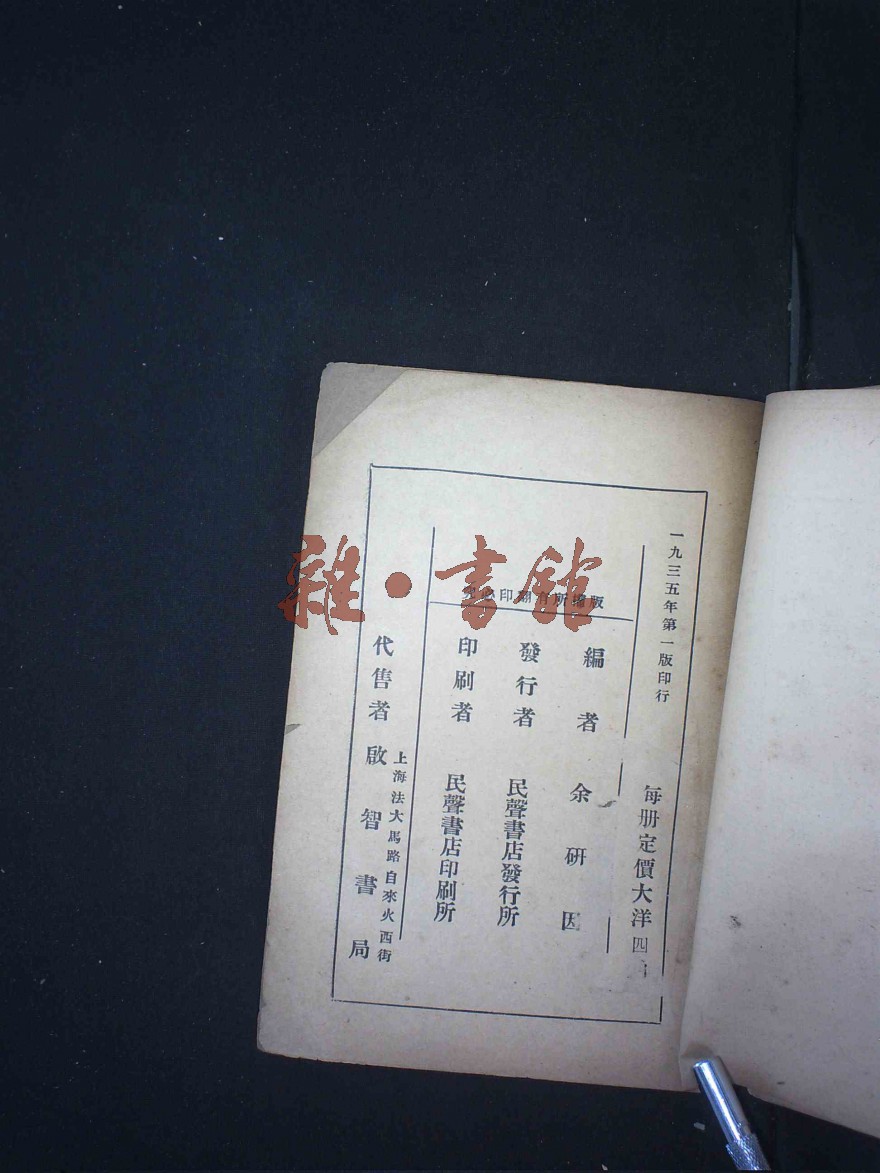 一九三五年第一版印行
每册定價大洋四
版權所有翻印必究
編者 余研因
發行者 民聲書店發行所
印刷者 民聲書店印刷所
上海法大馬路自來火西街
代售者 啟智書局
雜·書館